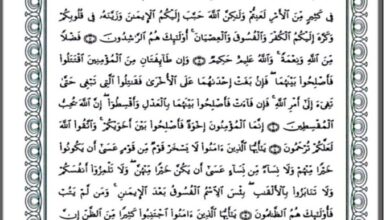 فِى كَثِيرٍ مِّنَ ٱلْأَمْرِ لَعَنِتُّمْ وَلَٰكِنَّ ٱللَّهَ حَبَّبَ إِلَيْكُمُ ٱلْإِيمَٰنَ وَزَيَّنَهُۥ فِى قُلُوبِكُمْ
وَكَرَّهَ إِلَيْكُمُ ٱلْكُفْرَ وَٱلْفُسُوقَ وَٱلْعِصْيَانَ ۚ أُو۟لَٰٓئِكَ هُمُ ٱلرَّٰشِدُونَ ٧ فَضْلًا
مِّنَ ٱللَّهِ وَنِعْمَةً ۚ وَٱللَّهُ عَلِيمٌ حَكِيمٌ ٨ وَإِن طَآئِفَتَانِ مِنَ ٱلْمُؤْمِنِينَ ٱقْتَتَلُوا۟
فَأَصْلِحُوا۟ بَيْنَهُمَا ۖ فَإِنۢ بَغَتْ إِحْدَىٰهُمَا عَلَى ٱلْأُخْرَىٰ فَقَٰتِلُوا۟ ٱلَّتِى تَبْغِى حَتَّىٰ
تَفِىٓءَ إِلَىٰٓ أَمْرِ ٱللَّهِ ۚ فَإِن فَآءَتْ فَأَصْلِحُوا۟ بَيْنَهُمَا بِٱلْعَدْلِ وَأَقْسِطُوٓا۟ ۖ إِنَّ ٱللَّهَ يُحِبُّ
ٱلْمُقْسِطِينَ ٩ إِنَّمَا ٱلْمُؤْمِنُونَ إِخْوَةٌ فَأَصْلِحُوا۟ بَيْنَ أَخَوَيْكُمْ ۚ وَٱتَّقُوا۟ ٱللَّهَ
لَعَلَّكُمْ تُرْحَمُونَ ١٠ يَٰٓأَيُّهَا ٱلَّذِينَ ءَامَنُوا۟ لَا يَسْخَرْ قَوْمٌ مِّن قَوْمٍ عَسَىٰٓ أَن يَكُونُوا۟
خَيْرًا مِّنْهُمْ وَلَا نِسَآءٌ مِّن نِّسَآءٍ عَسَىٰٓ أَن يَكُنَّ خَيْرًا مِّنْهُنَّ ۖ وَلَا تَلْمِزُوٓا۟ أَنفُسَكُمْ
وَلَا تَنَابَزُوا۟ بِٱلْأَلْقَٰبِ ۖ بِئْسَ ٱلِٱسْمُ ٱلْفُسُوقُ بَعْدَ ٱلْإِيمَٰنِ ۚ وَمَن لَّمْ يَتُبْ
فَأُو۟لَٰٓئِكَ هُمُ ٱلظَّٰلِمُونَ ١١ يَٰٓأَيُّهَا ٱلَّذِينَ ءَامَنُوا۟ ٱجْتَنِبُوا۟ كَثِيرًا مِّنَ ٱلظَّنِّ إِنَّ